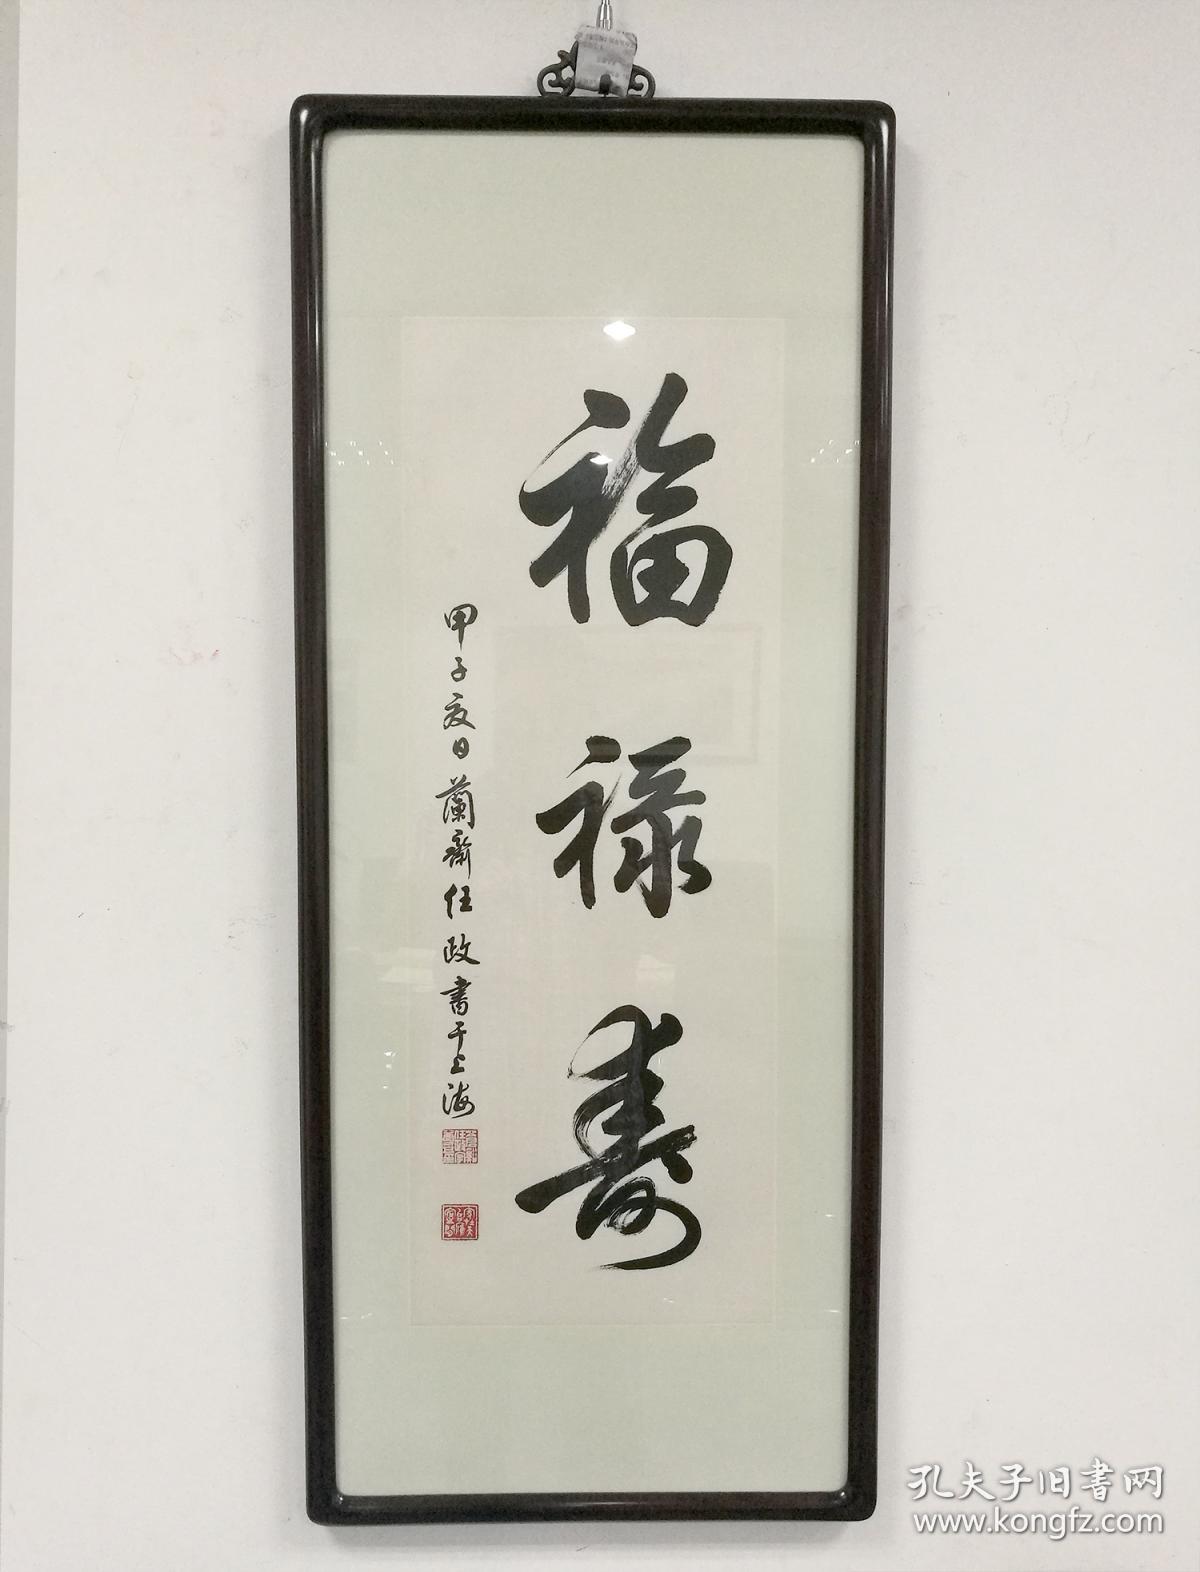 福禄寿
甲子夏日蘭齋任政書于上海
孔夫子旧書网
www.kongfz.com